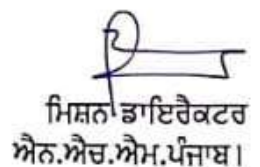 ਮਿਸ਼ਨ ਡਾਇਰੈਕਟਰ
ਐਨ.ਐਚ.ਐਮ.ਪੰਜਾਬ।